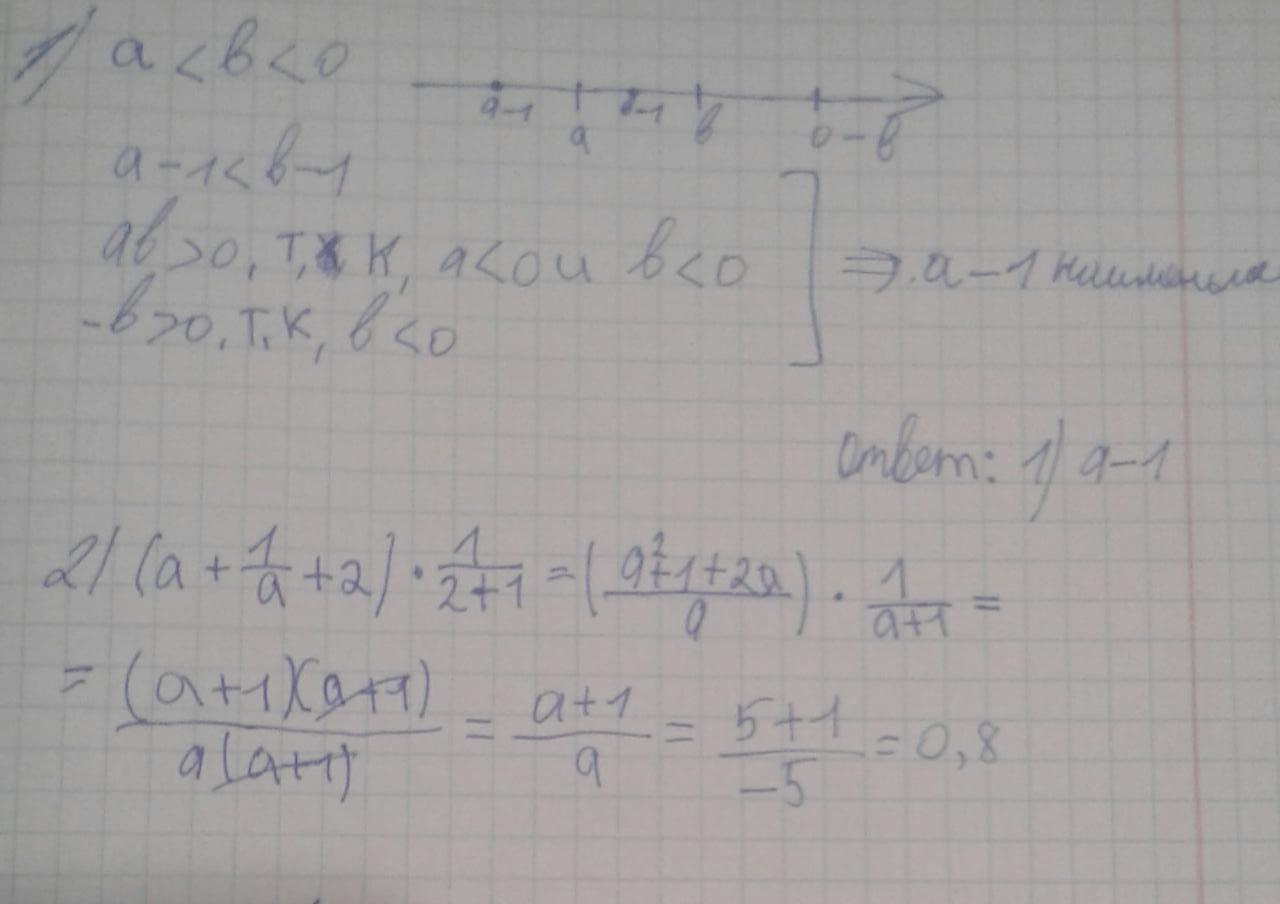 1) a < b < 0
a-1 a b-1 b 0 -b
a - 1 < b - 1
ab > 0, т.к, a < 0 и b < 0
⇒ a - 1 наименьшая
-b > 0, т.к, b < 0
Ответ: 1) a - 1
2) (a + 1/a + 2) · 1/(2+1) = ((a²+1+2a)/a) · 1/(a+1) =
= (a+1)(a+1)/a(a+1) = (a+1)/a = (5+1)/-5 = 0,8